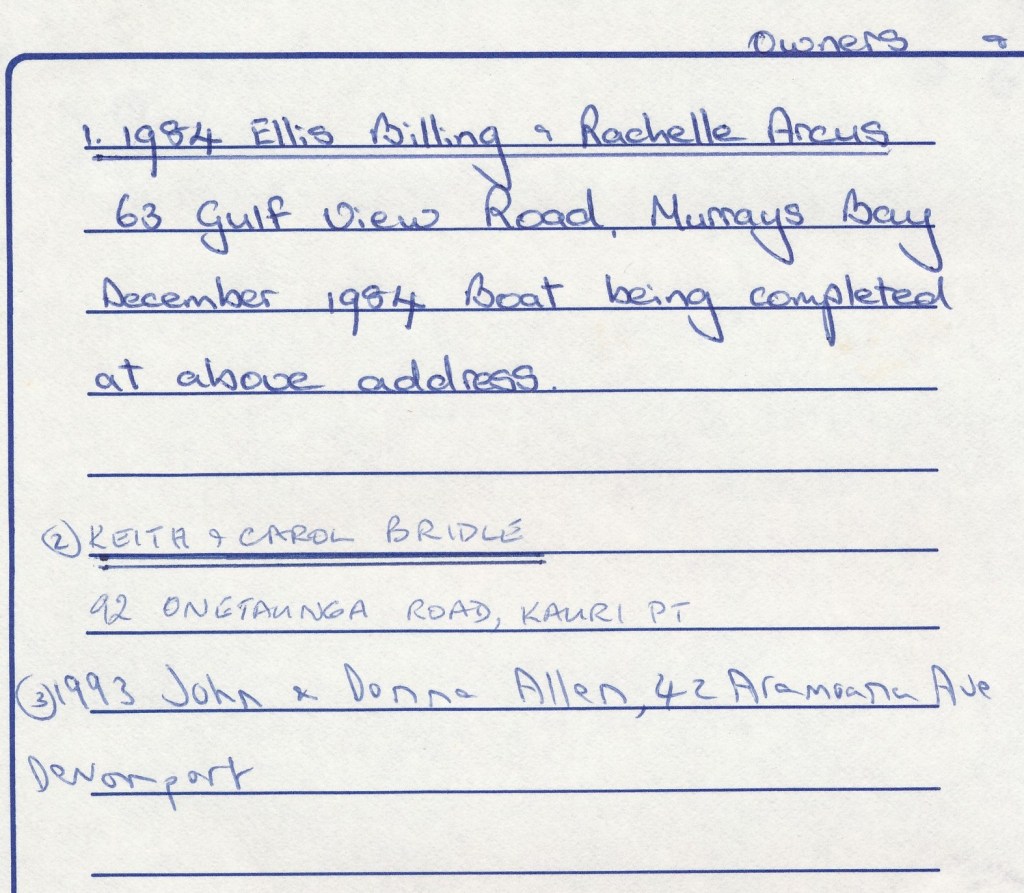 Owners &
1. 1984 Ellis Billing & Rachelle Arcus
63 Gulf View Road, Murrays Bay
December 1984 Boat being completed
at above address.
② KEITH & CAROL BRIDLE
92 ONETAUNGA ROAD, KAURI PT
③ 1993 John & Donna Allen, 42 Aramoana Ave
Devonport